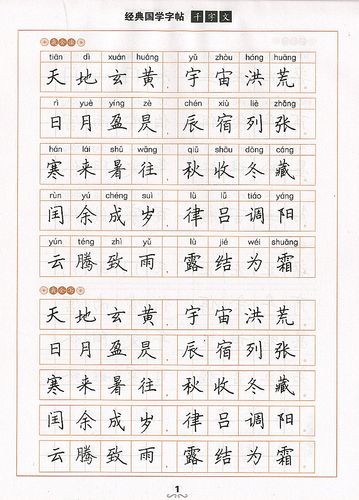 经典国学字帖 千字文
tiān dì xuán huáng yǔ zhòu hóng huāng
天地玄黄，宇宙洪荒。
rì yuè yíng zè chén xiù liè zhāng
日月盈昃，辰宿列张。
hán lái shǔ wǎng qiū shōu dōng cáng
寒来暑往，秋收冬藏。
rùn yú chéng suì lǜ lǚ tiáo yáng
闰余成岁，律吕调阳。
yún téng zhì yǔ lù jié wéi shuāng
云腾致雨，露结为霜。
天地玄黄，宇宙洪荒。
日月盈昃，辰宿列张。
寒来暑往，秋收冬藏。
闰余成岁，律吕调阳。
云腾致雨，露结为霜。
1